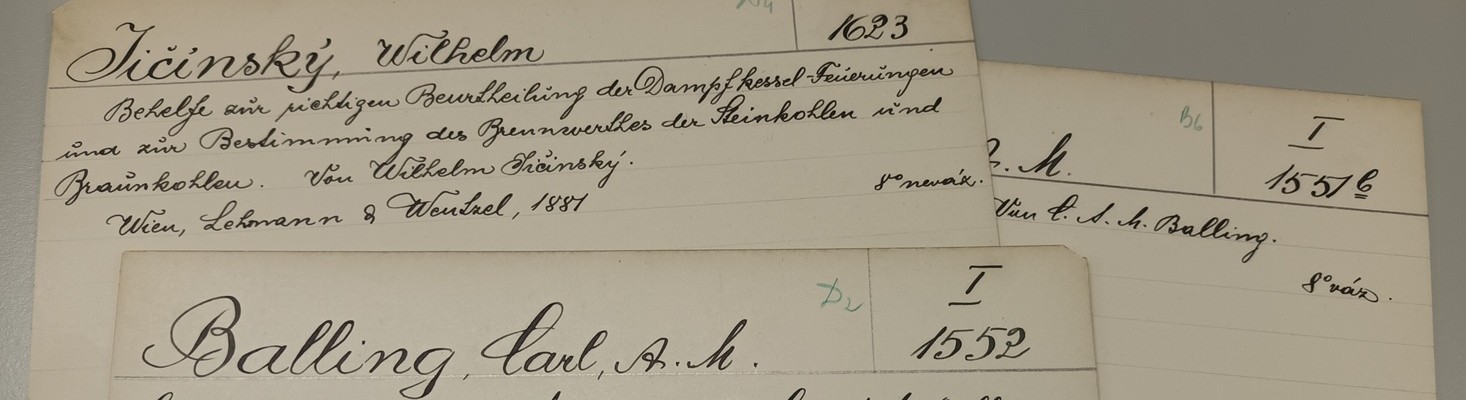 Jičínský, Wilhelm
1623
Behelfe zur richtigen Beurtheilung der Dampfkessel-Feuerungen
und zur Bestimmung des Brennwerthes der Steinkohlen und
Braunkohlen. Von Wilhelm Jičínský.
8° neváz.
Wien, Lehmann & Wentzel, 1881
B6
I
A. M.
1551b
Von C. A. M. Balling.
8° váz.
D2
I
Balling, Carl, A. M.
1552